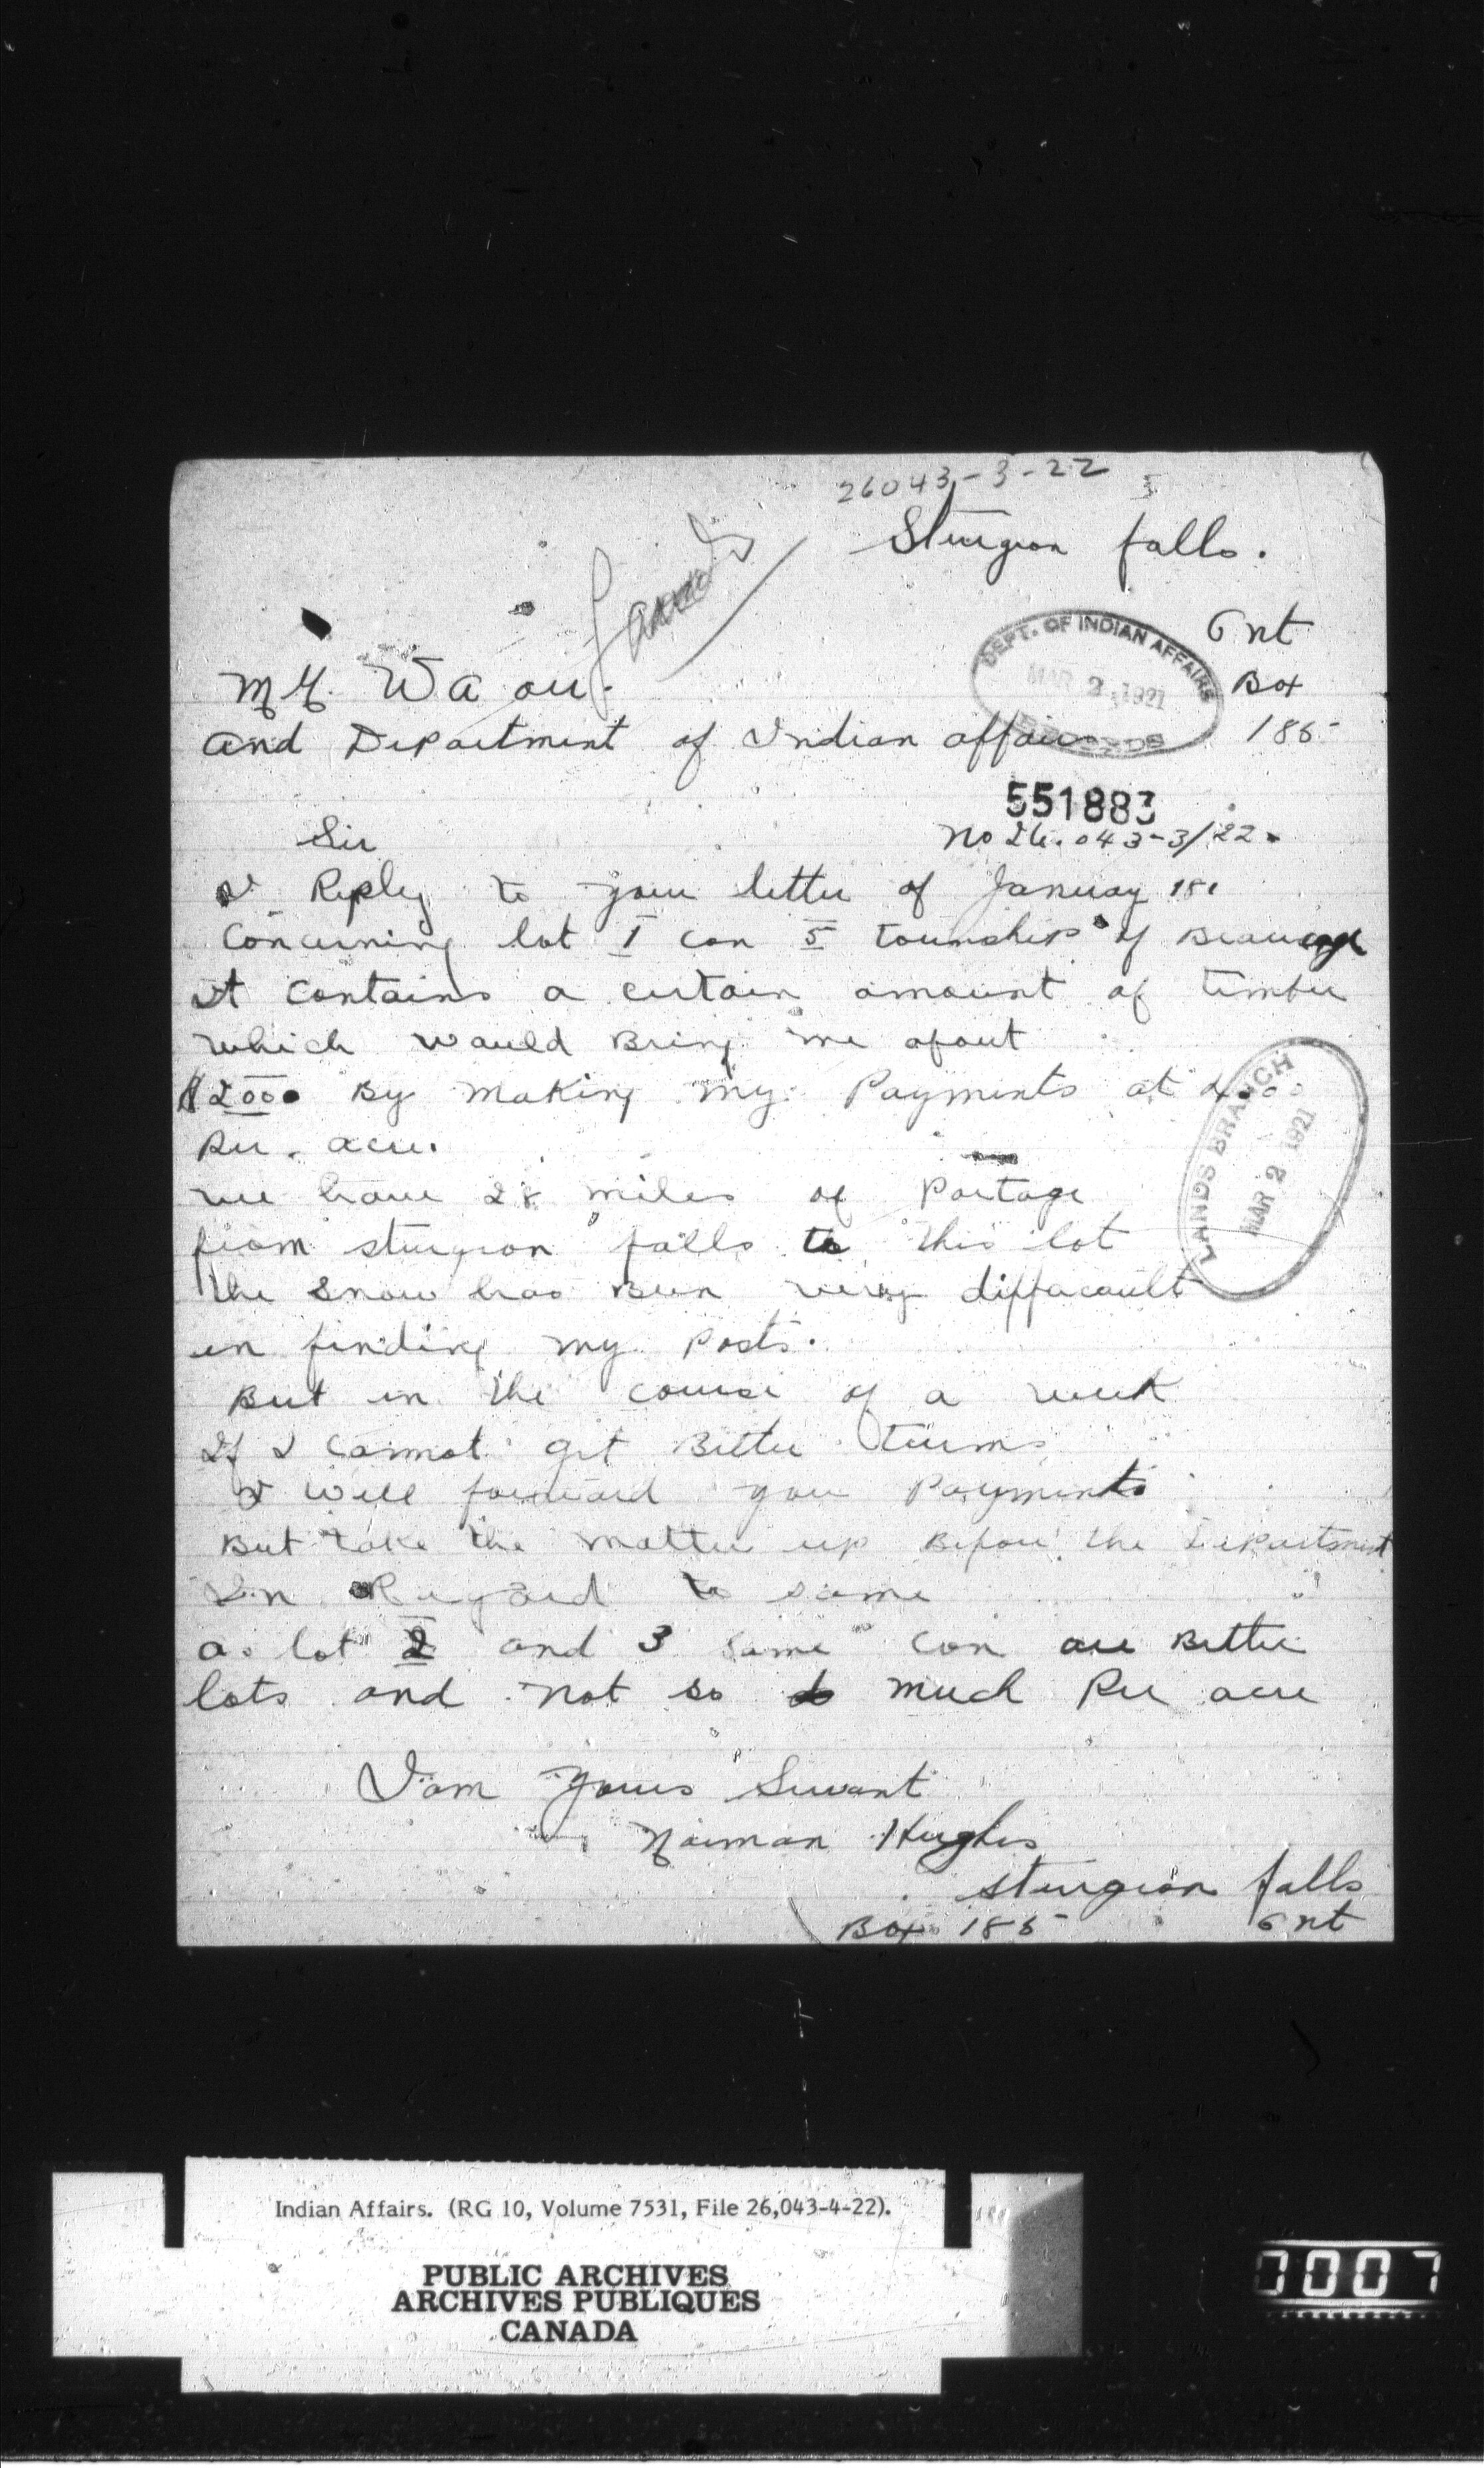 26043-3-22
Sturgeon falls.
Lands
Ont
Box
185
DEPT. OF INDIAN AFFAIRS
MAR 2 1921
RECORDS
Mr.
and Department of Indian affairs
551883
Sir
No 26.043-3/22.
I Reply to your letter of January 18
Concerning lot 1 con 5 township of Beaucage
It contains a certain amount of timber
which would Bring me about
$2000 By making my Payments at
Per. acre.
LANDS BRANCH
MAR 2 1921
we have 28 miles of Portage
from sturgeon falls to this lot
the snow has Been very diffacault
in finding my Posts.
But in the course of a week
If I cannot get Better terms
I will forward you Payments
But take the matter up Before the Department
In Regard to same
as lot 2 and 3 same con are Better
lots and not so much Per acre
I am yours Servant
Norman Hughes
sturgeon falls
Box 185 Ont
Indian Affairs. (RG 10, Volume 7531, File 26,043-4-22).
PUBLIC ARCHIVES
ARCHIVES PUBLIQUES
CANADA
0007